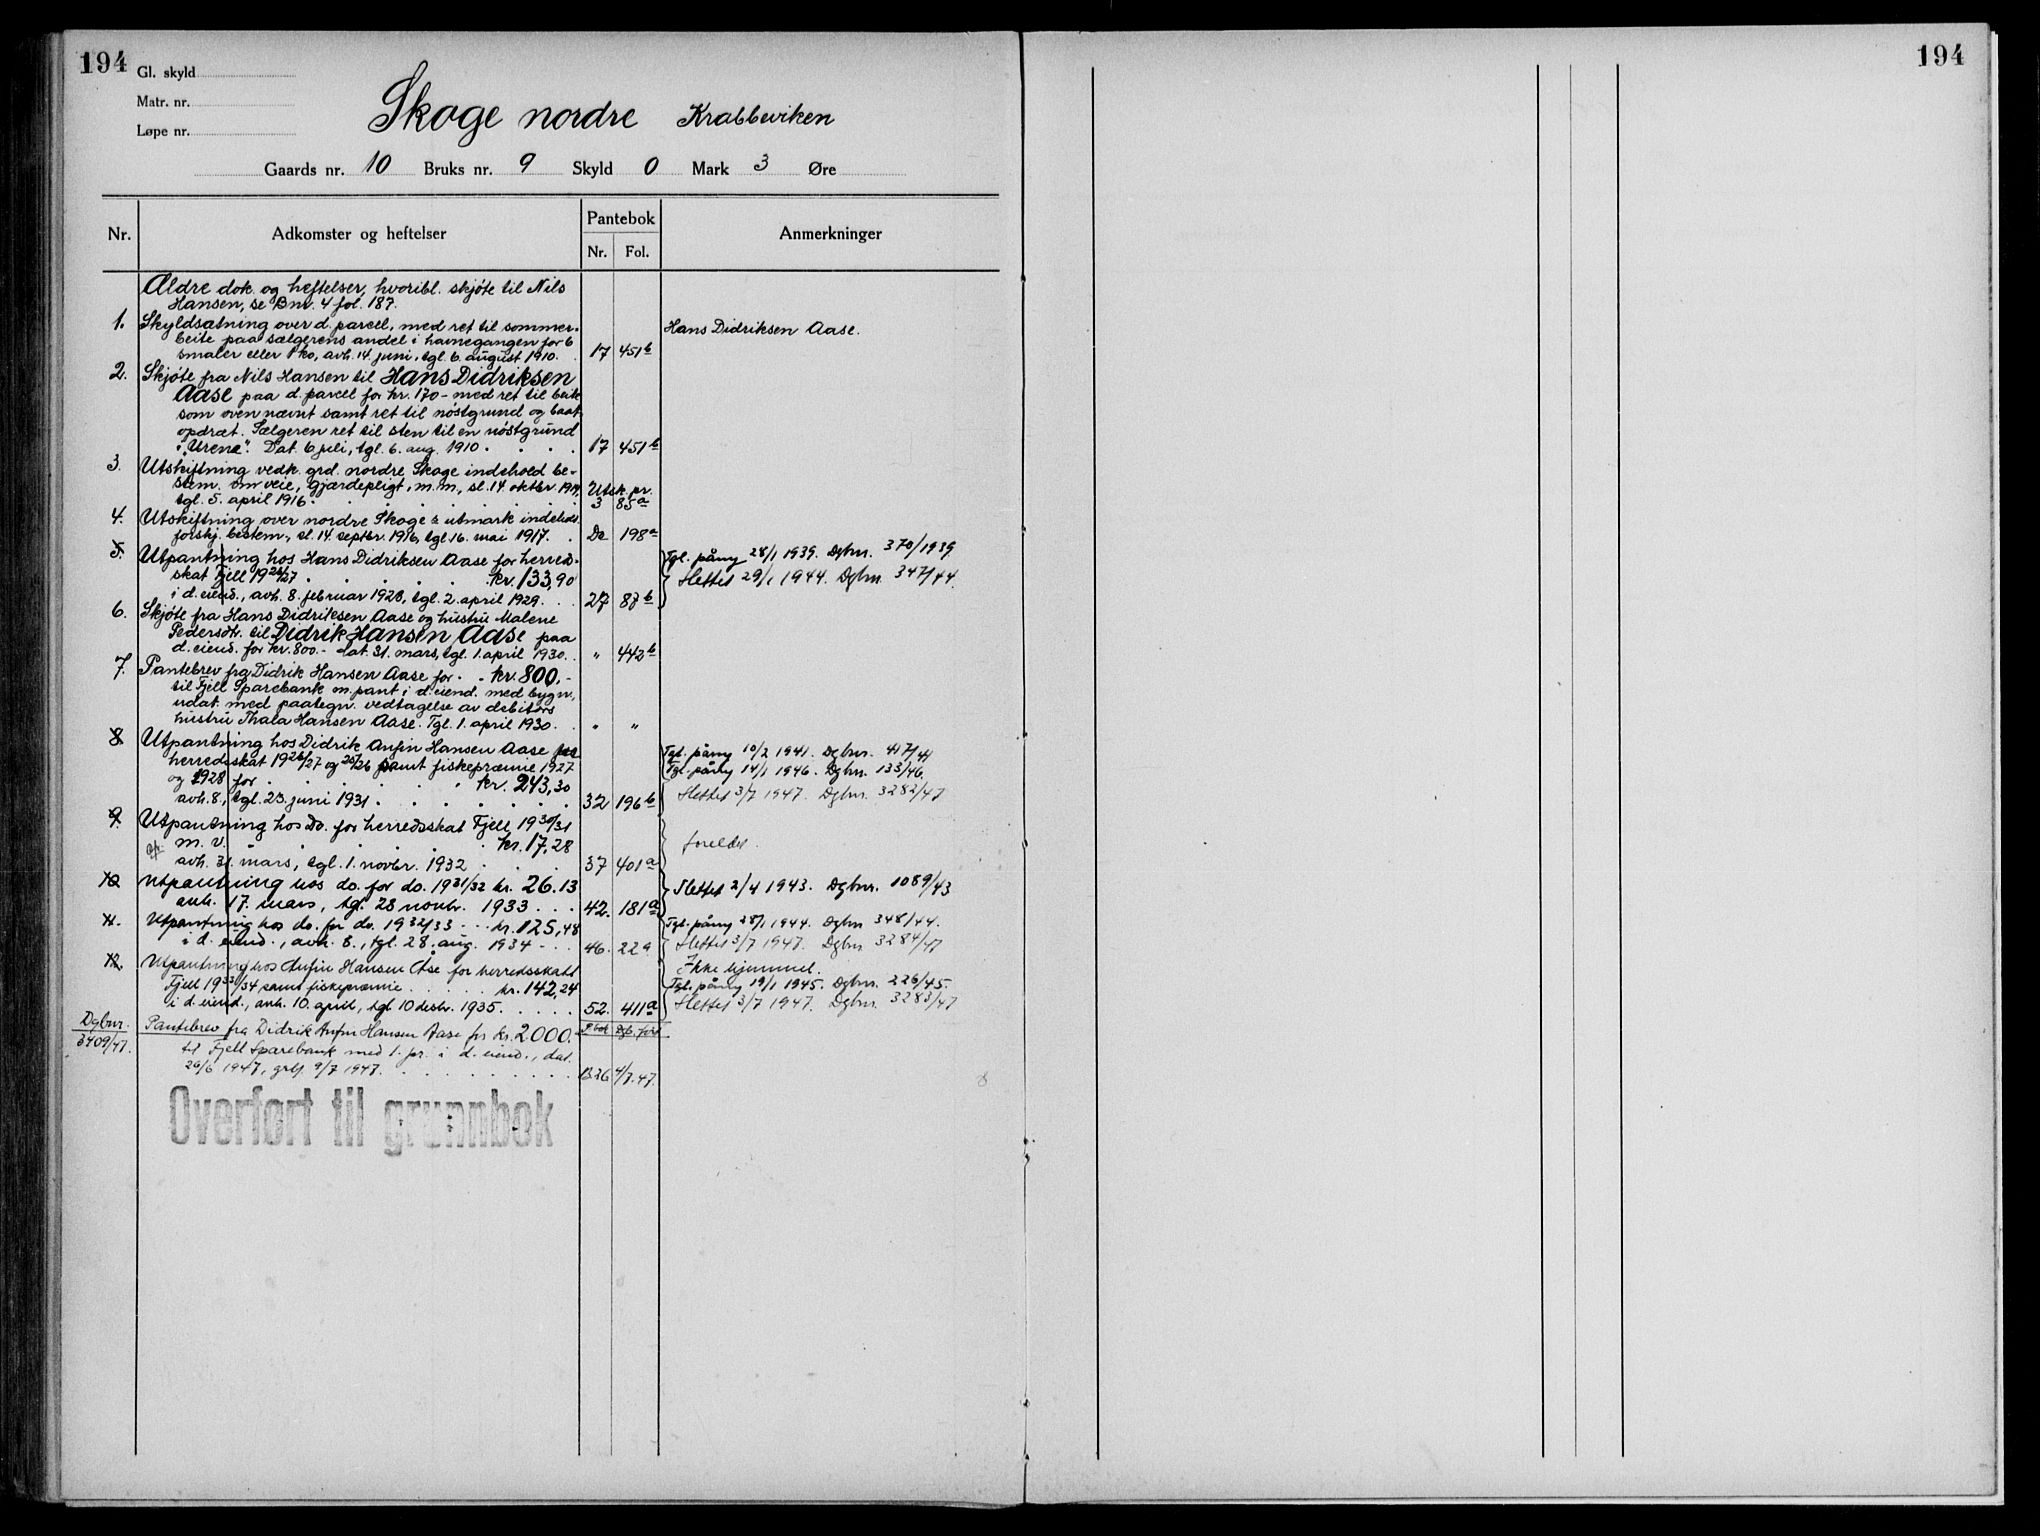 194
194
Gl. skyld
Matr. nr.
Løpe nr.
Skoge nordre Krabbeviken
Gaards nr. 10 Bruks nr. 9 Skyld 0 Mark 3 Øre
Nr. Adkomster og heftelser Pantebok Anmerkninger
Nr. Fol.
Ældre dok. og heftelser, hvoribl. skjøte til Nils
Hansen, se Bnr. 4 fol. 187.
1. Skyldsætning over d. parcell, med ret til sommer- Hans Didriksen Aase.
beite paa sælgerens andel i havnegangen for 6
smaler eller 1 ko, avh. 14. juni, tgl. 6. august 1910. 17 451b
2. Skjøte fra Nils Hansen til Hans Didriksen
Aase paa d. parcel for kr. 170 - med ret til beite
som oven nævnt samt ret til nøstgrund og baat-
opdræt. Sælgeren ret til sten til en nøstgrund
i "Urene". Dat. 6 juli, tgl. 6. aug. 1910. 17 451b
3. Utskiftning vedk. grd. nordre Skoge indehold be-
stem. om veie, gjærdepligt, m.m., sl. 14. oktbr. 1914, Utsk. pr.
tgl. 5. april 1916. 3 85a
4. Utskiftning over nordre Skoge's utmark indehold.
forskj. bestem., sl. 14. septbr. 1916, tgl. 16. mai 1917. Do 198a
5. Utpantning hos Hans Didriksen Aase for herreds- Tgl. påny 28/1 1939. Dgbnr. 370/1939
skat Fjell 1926/27 kr. 133,90 Slettet 29/1 1944. Dgbnr. 347/44.
i d. eiend., avh. 8. februar 1928, tgl. 2. april 1929. 27 87b
6. Skjøte fra Hans Didriksen Aase og hustru Malene
Pedersdtr. til Didrik Hansen Aase paa
d. eiend. for kr. 800.- dat. 31. mars, tgl. 1. april 1930. " 442b
7. Pantebrev fra Didrik Hansen Aase for kr. 800,-
til Fjell Sparebank m. pant i d. eiend. med bygn.,
udat. med paategn. vedtagelse av debitors
hustru Thala Hansen Aase. Tgl. 1. april 1930. " "
8. Utpantning hos Didrik Anfin Hansen Aase for Tgl. påny 10/2 1941. Dgbnr. 417/41
herredsskat 1926/27 og 25/26 samt fiskepræmie 1927 Tgl. påny 14/1 1946. Dgbnr. 133/46.
og 1928 for kr. 243,30 Slettet 3/7 1947. Dgbnr. 3282/47
avh. 8., tgl. 23. juni 1931. 32 196b
9. Utpantning hos Do. for herredsskat Fjell 1930/31
m. v. kr. 17,28 foreldet.
avh. 31. mars, tgl. 1. novbr. 1932 37 401a
10. Utpantning hos do. for do. 1931/32 kr. 26.13 Slettet 2/4 1943. Dgbnr. 1089/43
avh. 17. mars, tgl. 28 novbr. 1933 42. 181a
11. Utpantning hos do. for do. 1932/33 kr. 125,48 Tgl. påny 28/1 1944. Dgbnr 348/44.
i d. eiend., avh. 8., tgl. 28. aug. 1934 46. 22a Slettet 3/7 1947. Dgbnr 3284/47
12. Utpantning hos Anfin Hansen Åse for herredsskatt Ikke hjemmel.
Fjell 1933/34 samt fiskepræmie kr. 142,24 Tgl. påny 19/1 1945. Dgbnr. 226/45.
i d. eiend., avh. 10. april, tgl 10 desbr. 1935. 52. 411a Slettet 3/7 1947. Dgbnr. 3283/47
Dgbnr. Pantebrev fra Didrik Anfin Hansen Aase for kr. 2000.- P.bok Dgb. ført
3409/47. til Fjell Sparebank med 1. pr. i d. eiend., dat.
26/6 1947, 9/7 1947. B26 9/7.47.
Overført til grunnbok